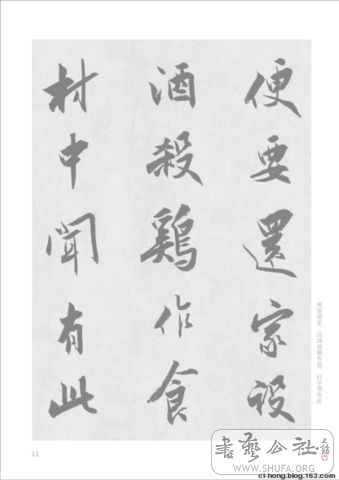 便要還家設
酒殺鷄作食
村中聞有此
便要還家，設酒殺鷄作食。村中聞有此
11
書藝公社
WWW.SHUFA.ORG
ci-hong.blog.163.com